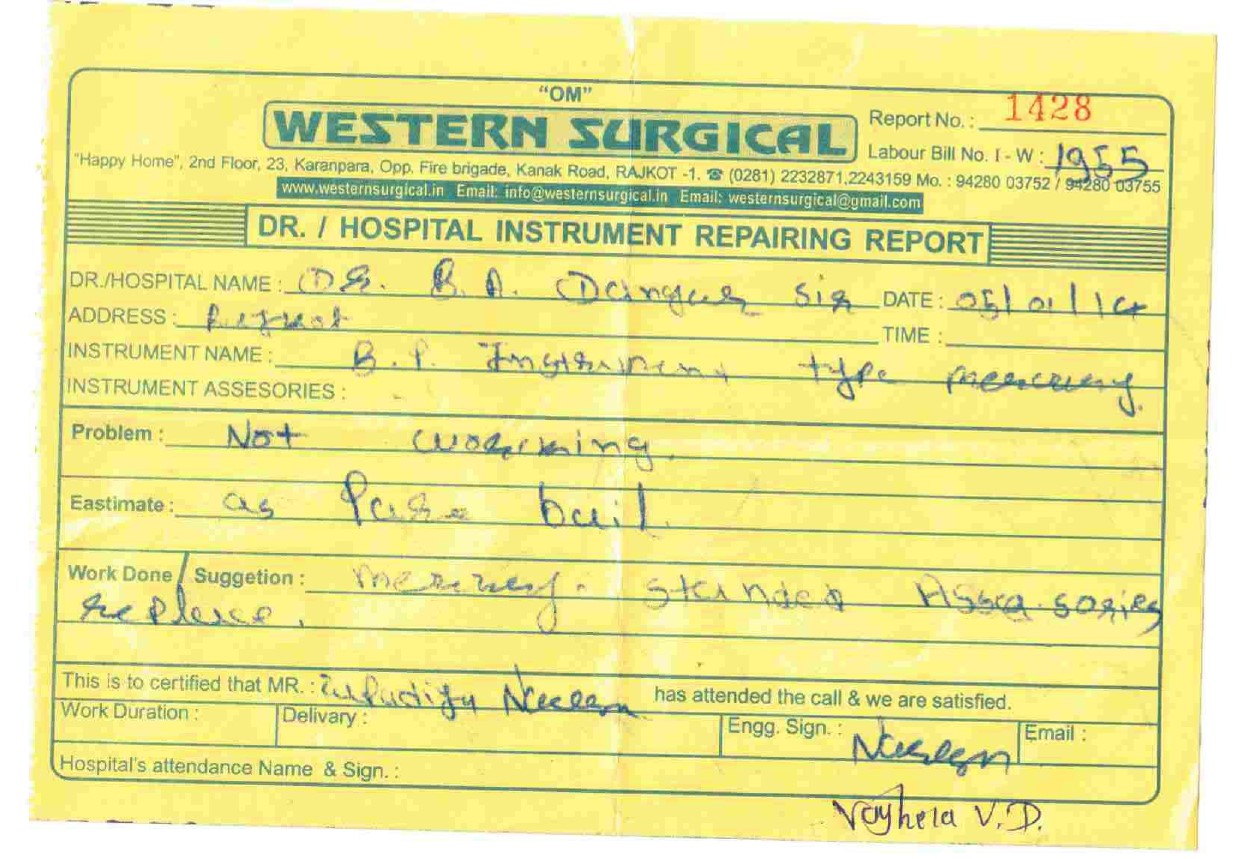 "OM"
WESTERN SURGICAL
Report No. : 1428
Labour Bill No. I - W : 1955
"Happy Home", 2nd Floor, 23, Karanpara, Opp. Fire brigade, Kanak Road, RAJKOT -1. ☎ (0281) 2232871,2243159 Mo. : 94280 03752 / 94280 03755
www.westernsurgical.in Email: info@westernsurgical.in Email: westernsurgical@gmail.com
DR. / HOSPITAL INSTRUMENT REPAIRING REPORT
DR./HOSPITAL NAME : DR. B. A. Dangar Sir DATE : 05/01/14
ADDRESS : TIME :
INSTRUMENT NAME : B.P. Instrument type mercury.
INSTRUMENT ASSESORIES : -
Problem : Not working.
Eastimate : as
Work Done / Suggetion : Assesories
replace.
This is to certified that MR. : has attended the call & we are satisfied.
Work Duration : Delivery : Engg. Sign. : Email :
Hospital's attendance Name & Sign. :
Vaghela V.D.